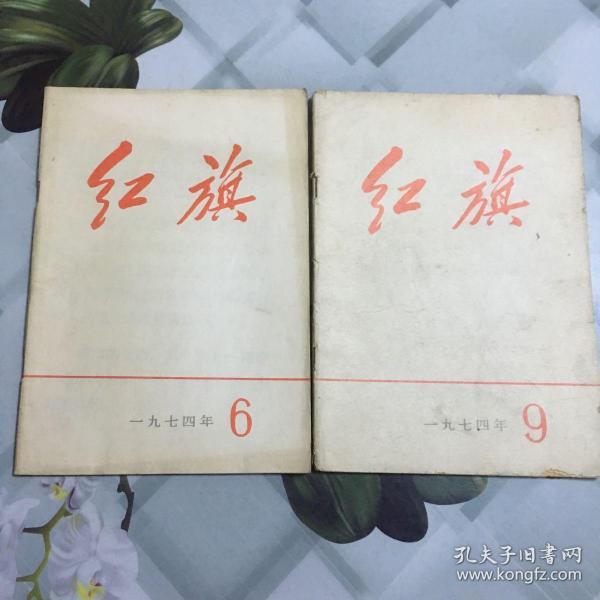 红旗
一九七四年 6
红旗
一九七四年 9
孔夫子旧书网
www.kongfz.com